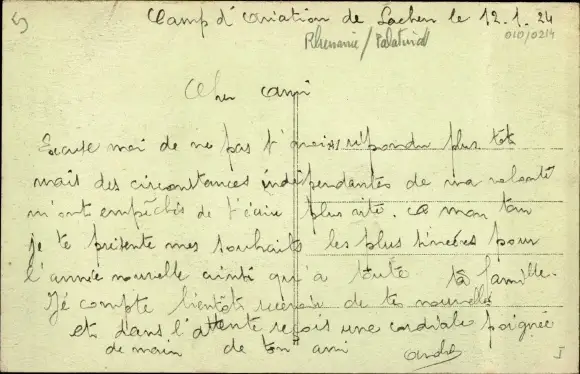 Camp d'aviation de Lachen le 12.1.24
Rhénanie / Palatinat
Cher ami
Excuse moi de ne pas t'avoir répondu plus tôt
mais des circonstances indépendantes de ma volonté
m'ont empêchés de t'écrire plus vite. a mon tour
je te présente mes souhaits les plus sincères pour
l'année nouvelle ainsi qu'a toute ta famille.
Je compte bientôt recevoir de tes nouvelles
et dans l'attente reçois une cordiale poignée
de main de ton ami André